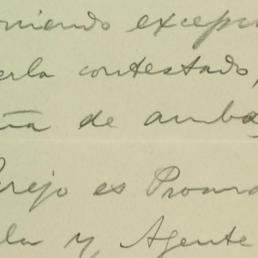 niendo excep
erla contestado,
ña de amba
arejo es Promo
la y Agente